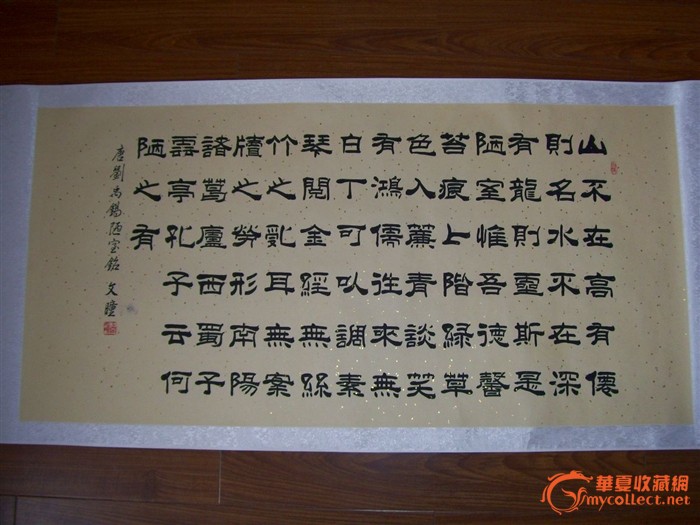 山不在高有僊
則名水不在深
有龍則靈斯是
陋室惟吾德馨
苔痕上階綠草
色入簾青談笑
有鴻儒往來無
白丁可以調素
琴閱金經無絲
竹之亂耳無案
牘之勞形南陽
諸葛廬西蜀子
雲亭孔子云何
陋之有
唐劉禹錫陋室銘 文瞳
華夏收藏網
mycollect.net